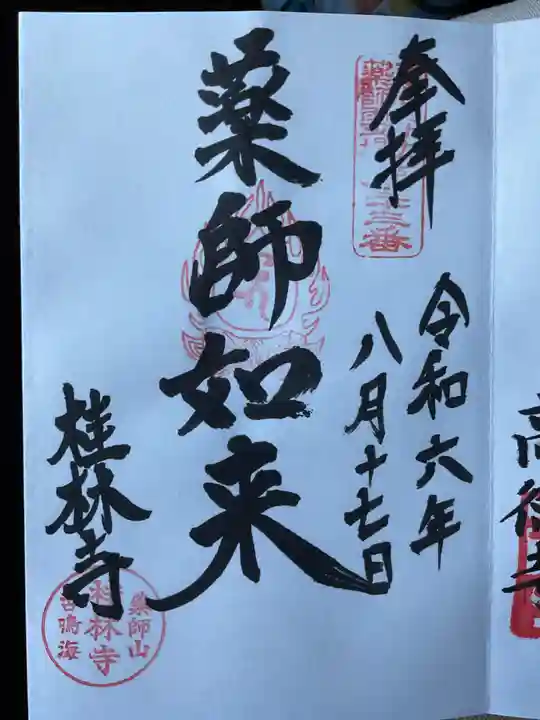 奉拝
令和六年
八月十七日
薬師如来
桂林寺
薬師山
桂林寺
鳴海